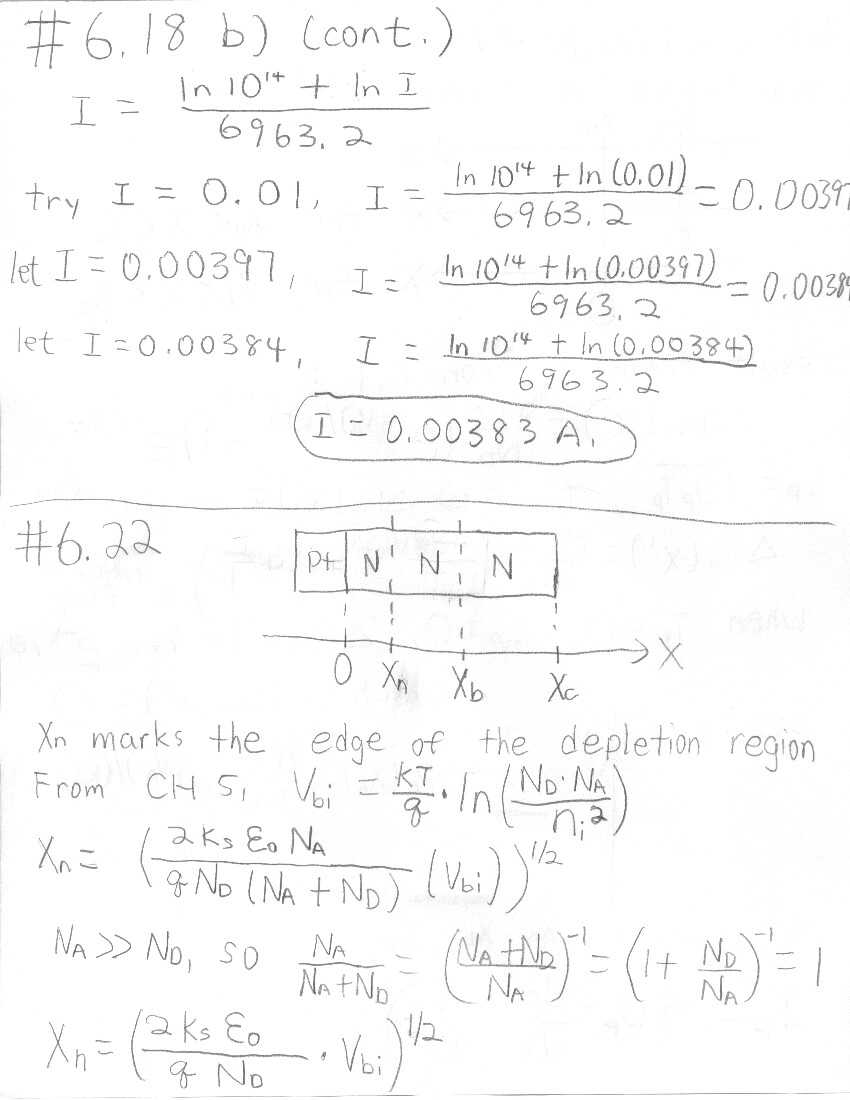 #6.18 b) (cont.)
I = (ln 10¹⁴ + ln I) / 6963.2
try I = 0.01, I = (ln 10¹⁴ + ln(0.01)) / 6963.2 = 0.00397
let I = 0.00397, I = (ln 10¹⁴ + ln(0.00397)) / 6963.2 = 0.00384
let I = 0.00384, I = (ln 10¹⁴ + ln(0.00384)) / 6963.2
I = 0.00383 A.
#6.22
P+ N N N
0 Xn Xb Xc X
Xn marks the edge of the depletion region
From CH 5, Vbi = kT/q · ln(ND·NA / ni²)
Xn = (2 Ks ε₀ NA / q ND (NA + ND) (Vbi))^1/2
NA >> ND, so NA / (NA+ND) = ((NA+ND) / NA)⁻¹ = (1 + ND/NA)⁻¹ = 1
Xn = (2 Ks ε₀ / q ND · Vbi)^1/2